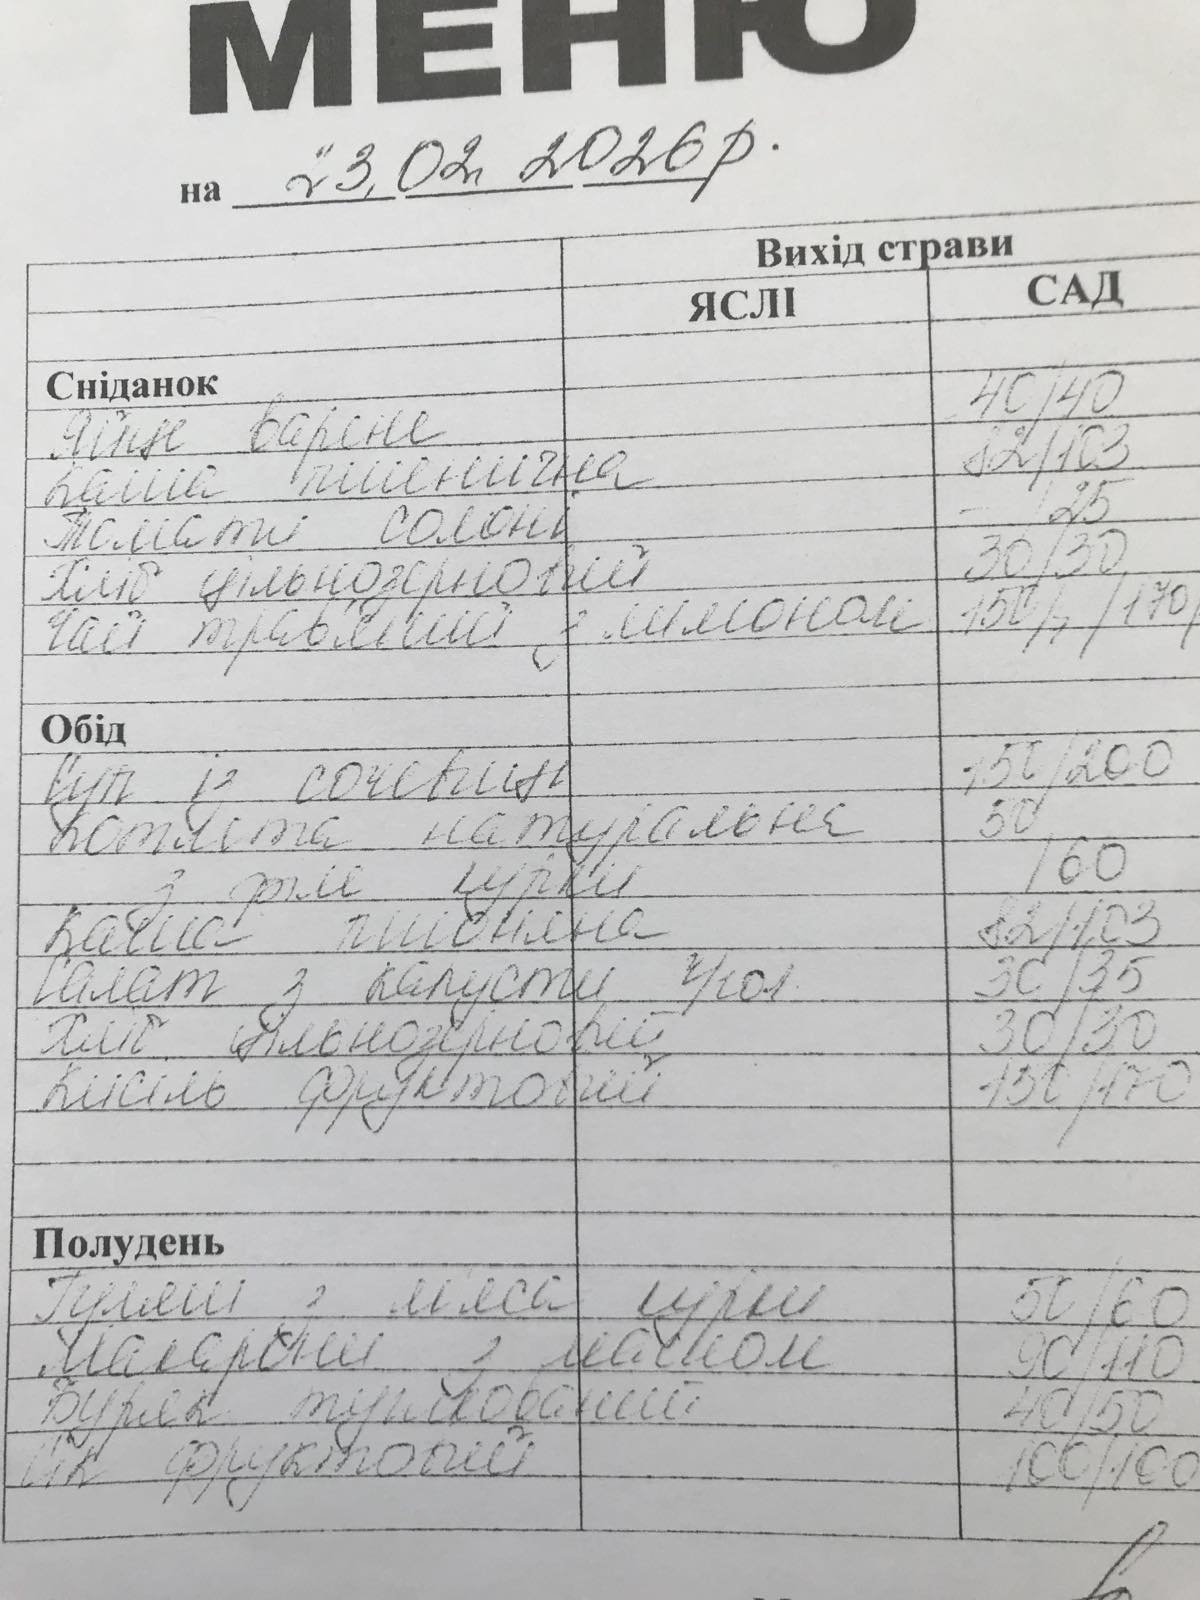 МЕНЮ
на 23.02. 2026р.
Вихід страви
ЯСЛІ САД
Сніданок
Яйце варене 40/40
Каша пшенична 82/103
Томати солоні - /25
Хліб цільнозерновий 30/30
Чай трав'яний з лимоном 150/ /170/
Обід
Суп із сочевиці 150/200
Котлета натуральна 50
з філе курки /60
Каша пшоняна 82/103
Салат з капусти 30/35
Хліб цільнозерновий 30/30
Кисіль фруктовий 150/170
Полудень
Гуляш з м'яса курки 50/60
Макарони з маслом 90/110
Буряк тушкований 40/50
Сік фруктовий 100/100